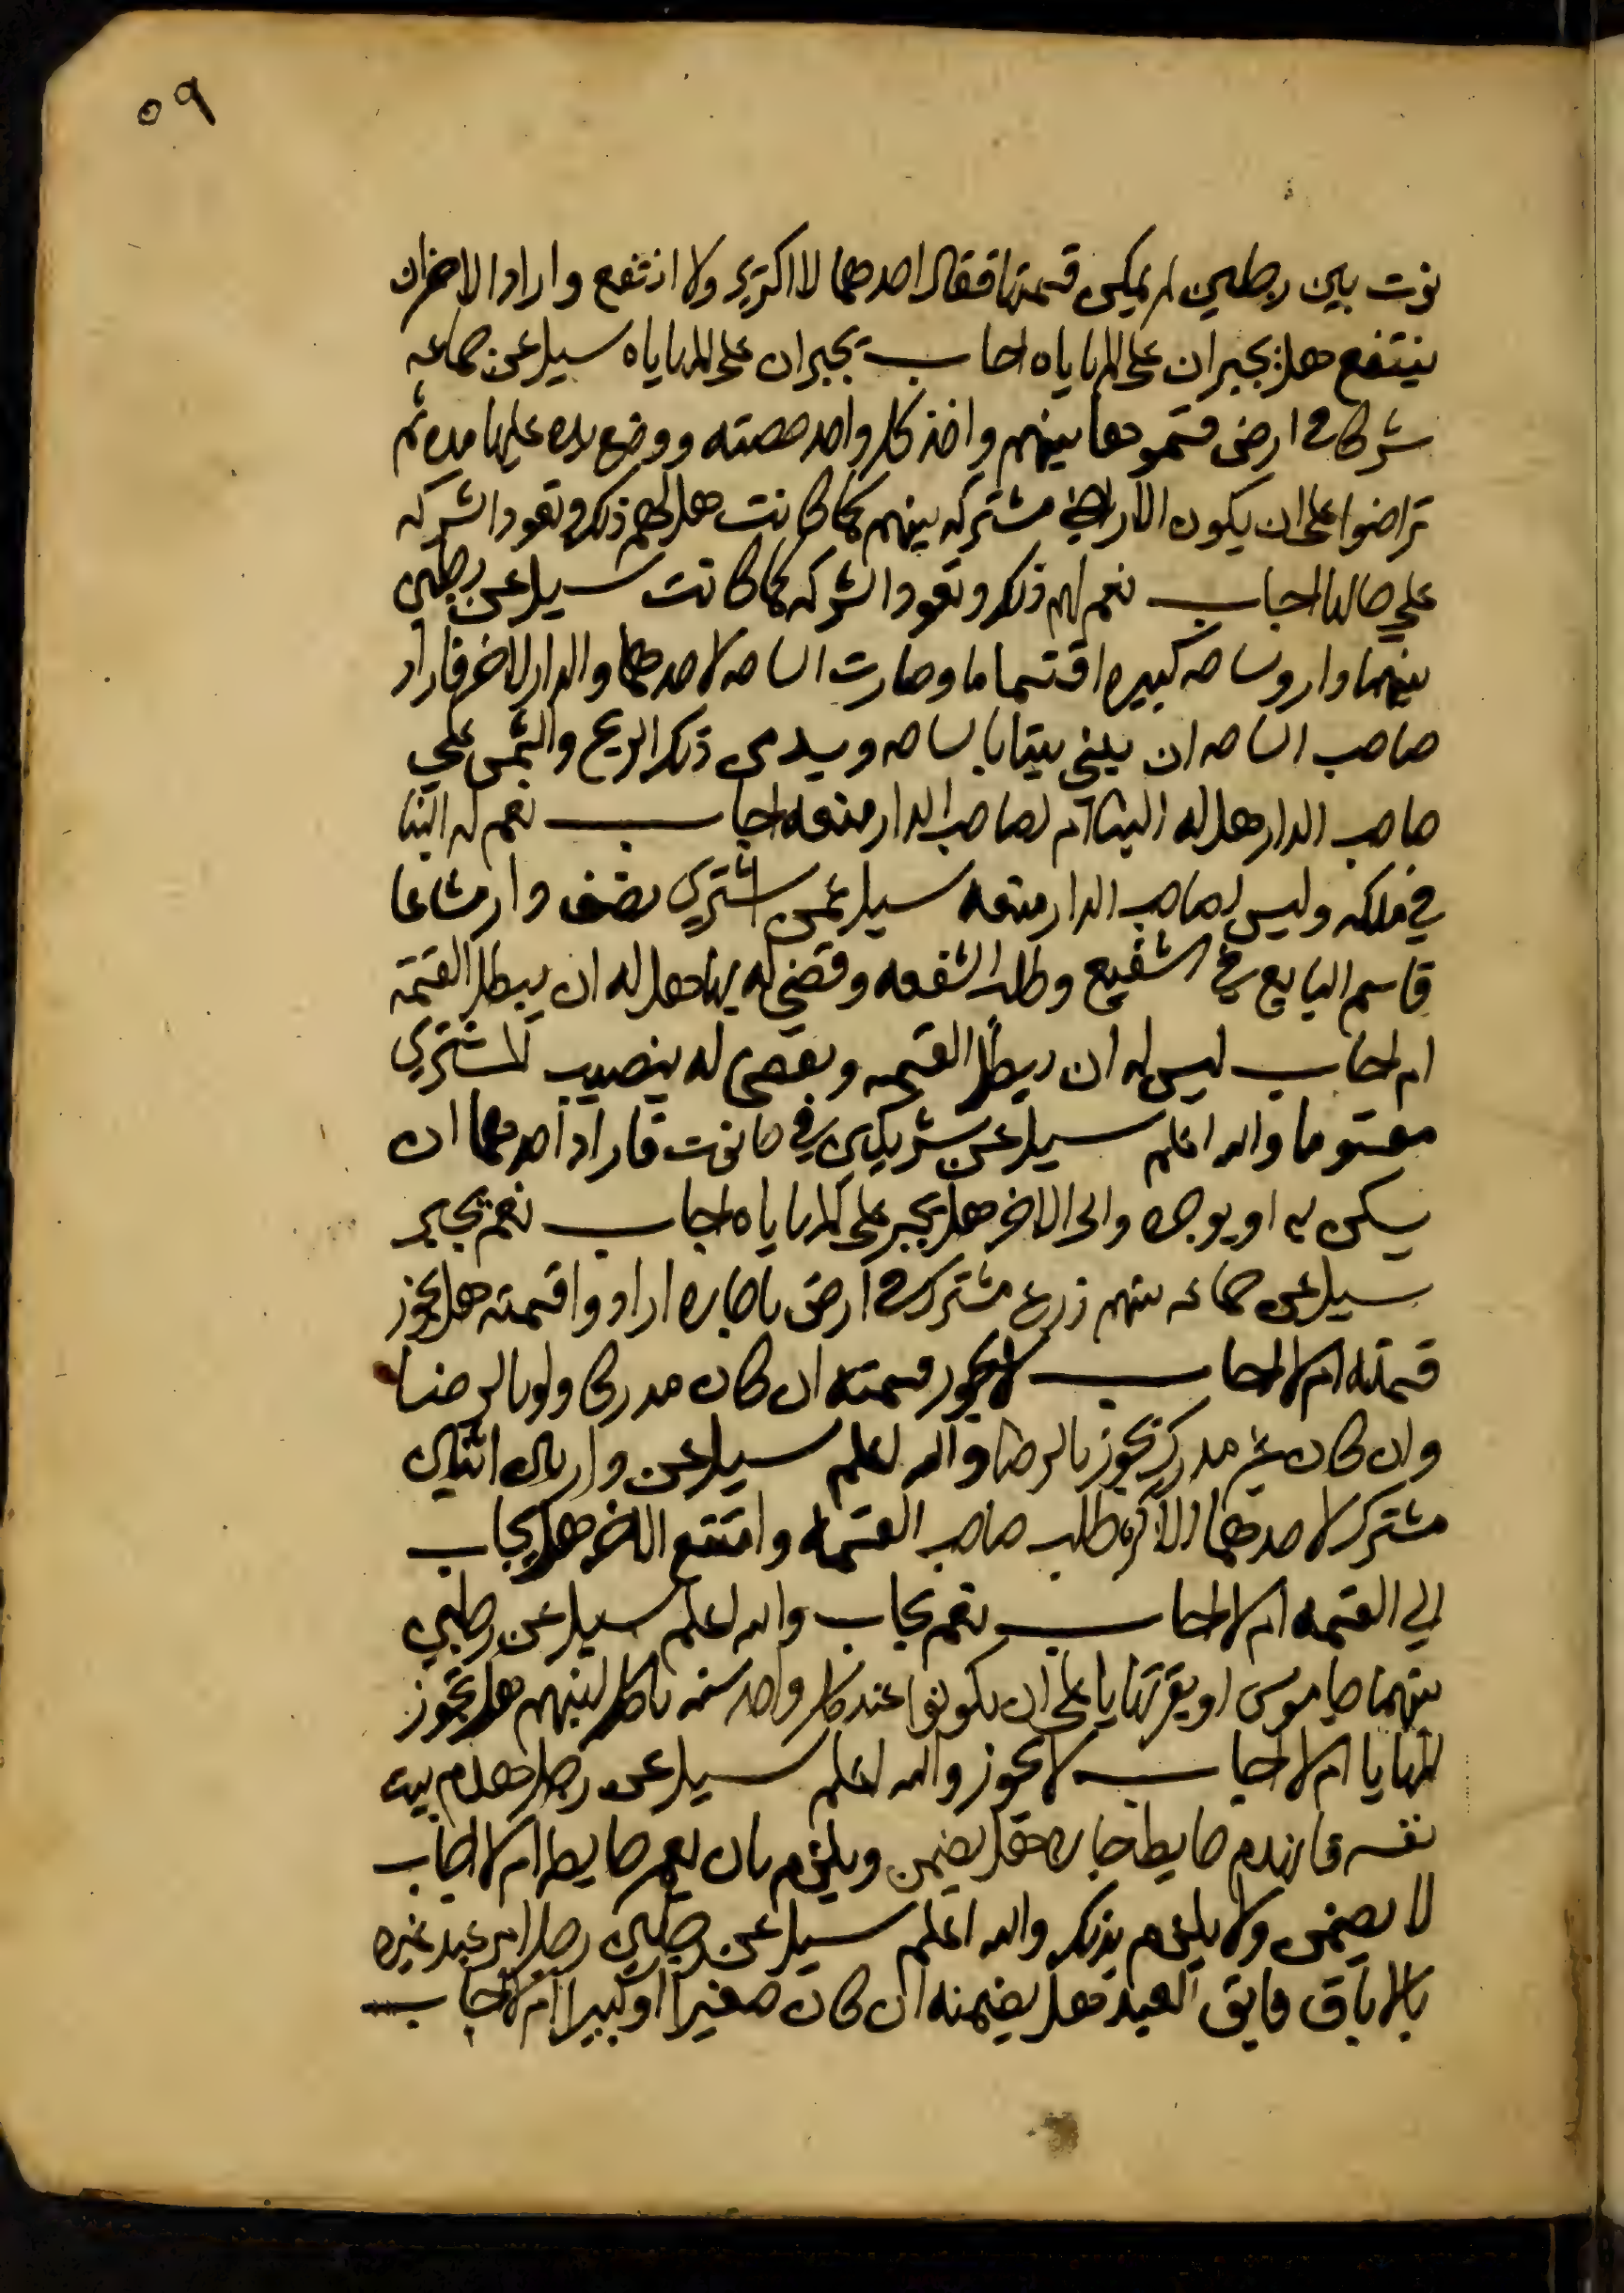 ٥٩
نوت بين رجلين لم يمكن قسمتها فقال احدهما لا اكتري ولا انتفع واراد الاخر ان
ينتفع هل يجبران على المهاياه اجاب يجبران على المهاياه سيل عن جماعه
شركا في ارض قسموها بينهم واخذ كل واحد حصته ووضع يده عليها مده ثم
تراضوا على ان يكون الاراضي مشتركه بينهم كما كانت هل لهم ذلك وتعود الشركه
علي حالها اجاب نعم لهم ذلك وتعود الشركه كما كانت سيل عن رجلين
بينهما دار وساحه كبيره اقتسماها وصارت الساحه لاحدهما والدار للاخر فاراد
صاحب الساحه ان يبني بيتا بالساحه ويسد ذلك الريح والشمس علي
صاحب الدار هل له البنا ام لصاحب الدار منعه اجاب نعم له البنا
في ملكه وليس لصاحب الدار منعه سيل عمن اشتري نصف دار مشاعا
قاسم البايع الشفيع وطلب الشفعه وقضي له بها هل له ان يبطل القسمة
ام لا اجاب ليس له ان يبطل القسمه ويقضى له بنصيب المشتري
مقسوما والله اعلم سيل عن شريكين في حانوت فاراد احدهما ان
يسكن او يوجره وابى الاخر هل يجبر على المهاياه اجاب نعم يجبر
سيل عن جماعه بينهم زرع مشترك في ارض باجاره ارادوا قسمته هل يجوز
قسمته ام لا اجاب لا يجوز قسمته ان كان مدركا ولو بالرضا
وان كان غير مدرك يجوز بالرضا والله اعلم سيل عن دار بين اثنين
مشترك لاحدهما الاكثر طلب صاحب القسمه وامتنع الاخر هل يجاب
الي القسمه ام لا اجاب نعم يجاب والله اعلم سيل عن رجلين
بينهما جاموس او بقر تهايا على ان يكونوا عند كل واحد سنه ياكل لبنهم هل تجوز
المهايا ام لا اجاب لا يجوز والله اعلم سيل عن رجل هدم بيت
نفسه فانهدم حايط جاره هل يضمن ويلزم بان يعمر حايطه ام لا اجاب
لا يضمن ولا يلزم بذلك والله اعلم سيل عن رجل امر عبد غيره
بالاباق فابق العبد هل يضمنه ان كان صغيرا او كبيرا ام لا اجاب